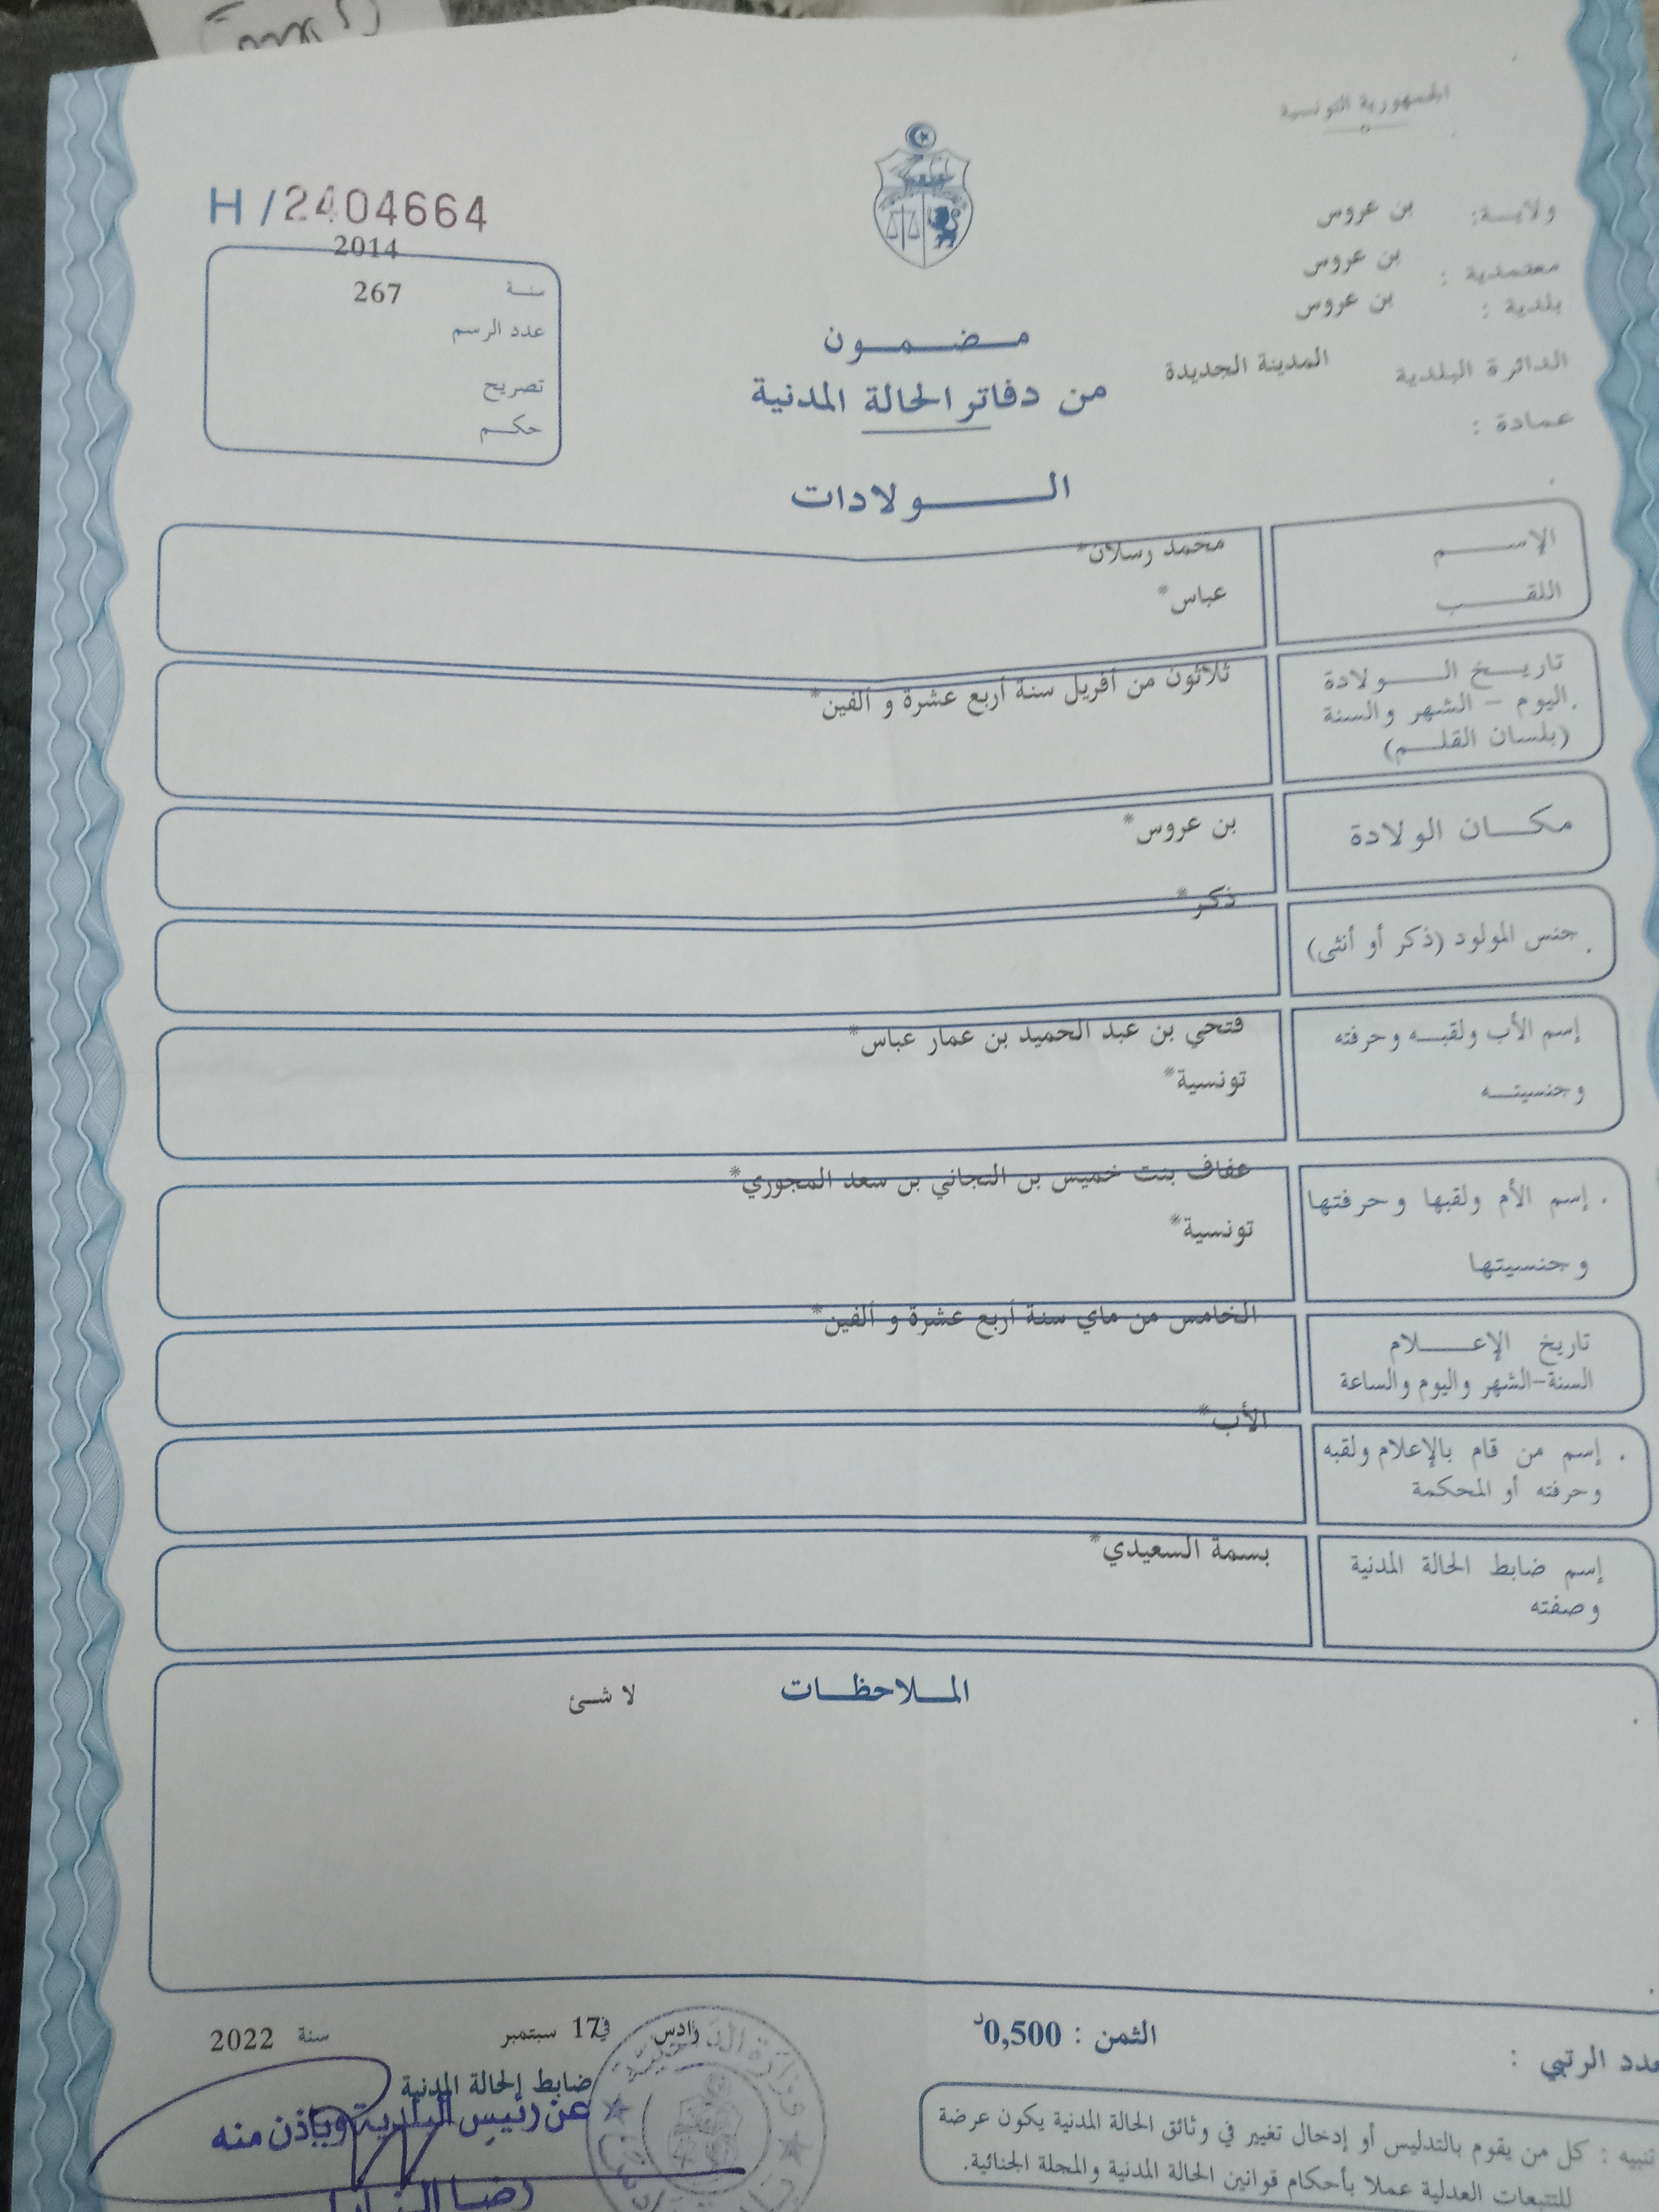 الجمهورية التونسية
ولايـــة: بن عروس
معتمدية : بن عروس
بلدية : بن عروس
الدائرة البلدية المدينة الجديدة
عمادة :
H/2404664
2014
سنـــة
267
عدد الرسم
تصريح
حكـــم
مـــضـــمـــون
من دفاتر الحالة المدنية
الــــولادات
الإســــم محمد رسلان*
اللقــــب عباس*
تاريــــخ الــــولادة ثلاثون من أفريل سنة أربع عشرة و ألفين*
اليوم – الشهر والسنة
(بلسان القلــــم)
مكــــان الولادة بن عروس*
جنس المولود (ذكر أو أنثى) ذكر*
إسم الأب ولقبــه وحرفته فتحي بن عبد الحميد بن عمار عباس*
وجنسيتــه تونسية*
إسم الأم ولقبها وحرفتها عفاف بنت خميس بن التجاني بن سعد المجوري*
وجنسيتها تونسية*
تاريخ الإعــــلام الخامس من ماي سنة أربع عشرة و ألفين*
السنة–الشهر واليوم والساعة
إسم من قام بالإعلام ولقبه الأب*
وحرفته أو المحكمة
إسم ضابط الحالة المدنية بسمة السعيدي*
وصفته
المــلاحظــات
لا شئ
عدد الرتبي :
الثمن : 0,500د
رادس في 17 سبتمبر سنة 2022
ضابط الحالة المدنية
عن رئيس البلدية وبإذن منه
رضا
وزارة الداخلية
تنبيه : كل من يقوم بالتدليس أو إدخال تغيير في وثائق الحالة المدنية يكون عرضة
للتتبعات العدلية عملا بأحكام قوانين الحالة المدنية والمجلة الجنائية.